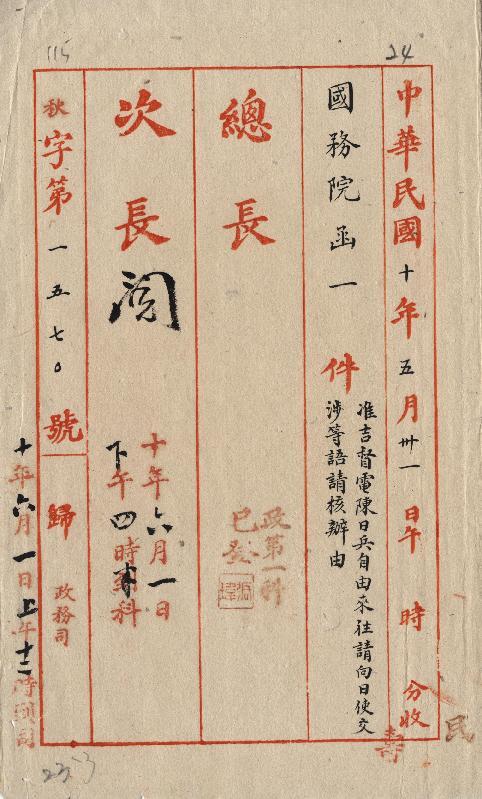 115
24
中華民國十年五月卅一日午 時 分收
國務院函一 件
准吉督電陳日兵自由來往請向日使交
涉等語請核辦由
總長
政第一科
已發
次長閱
十年六月一日
下午四時到科
秋字第一五七〇號 歸 政務司
十年六月一日上午十二時到司
壽
民